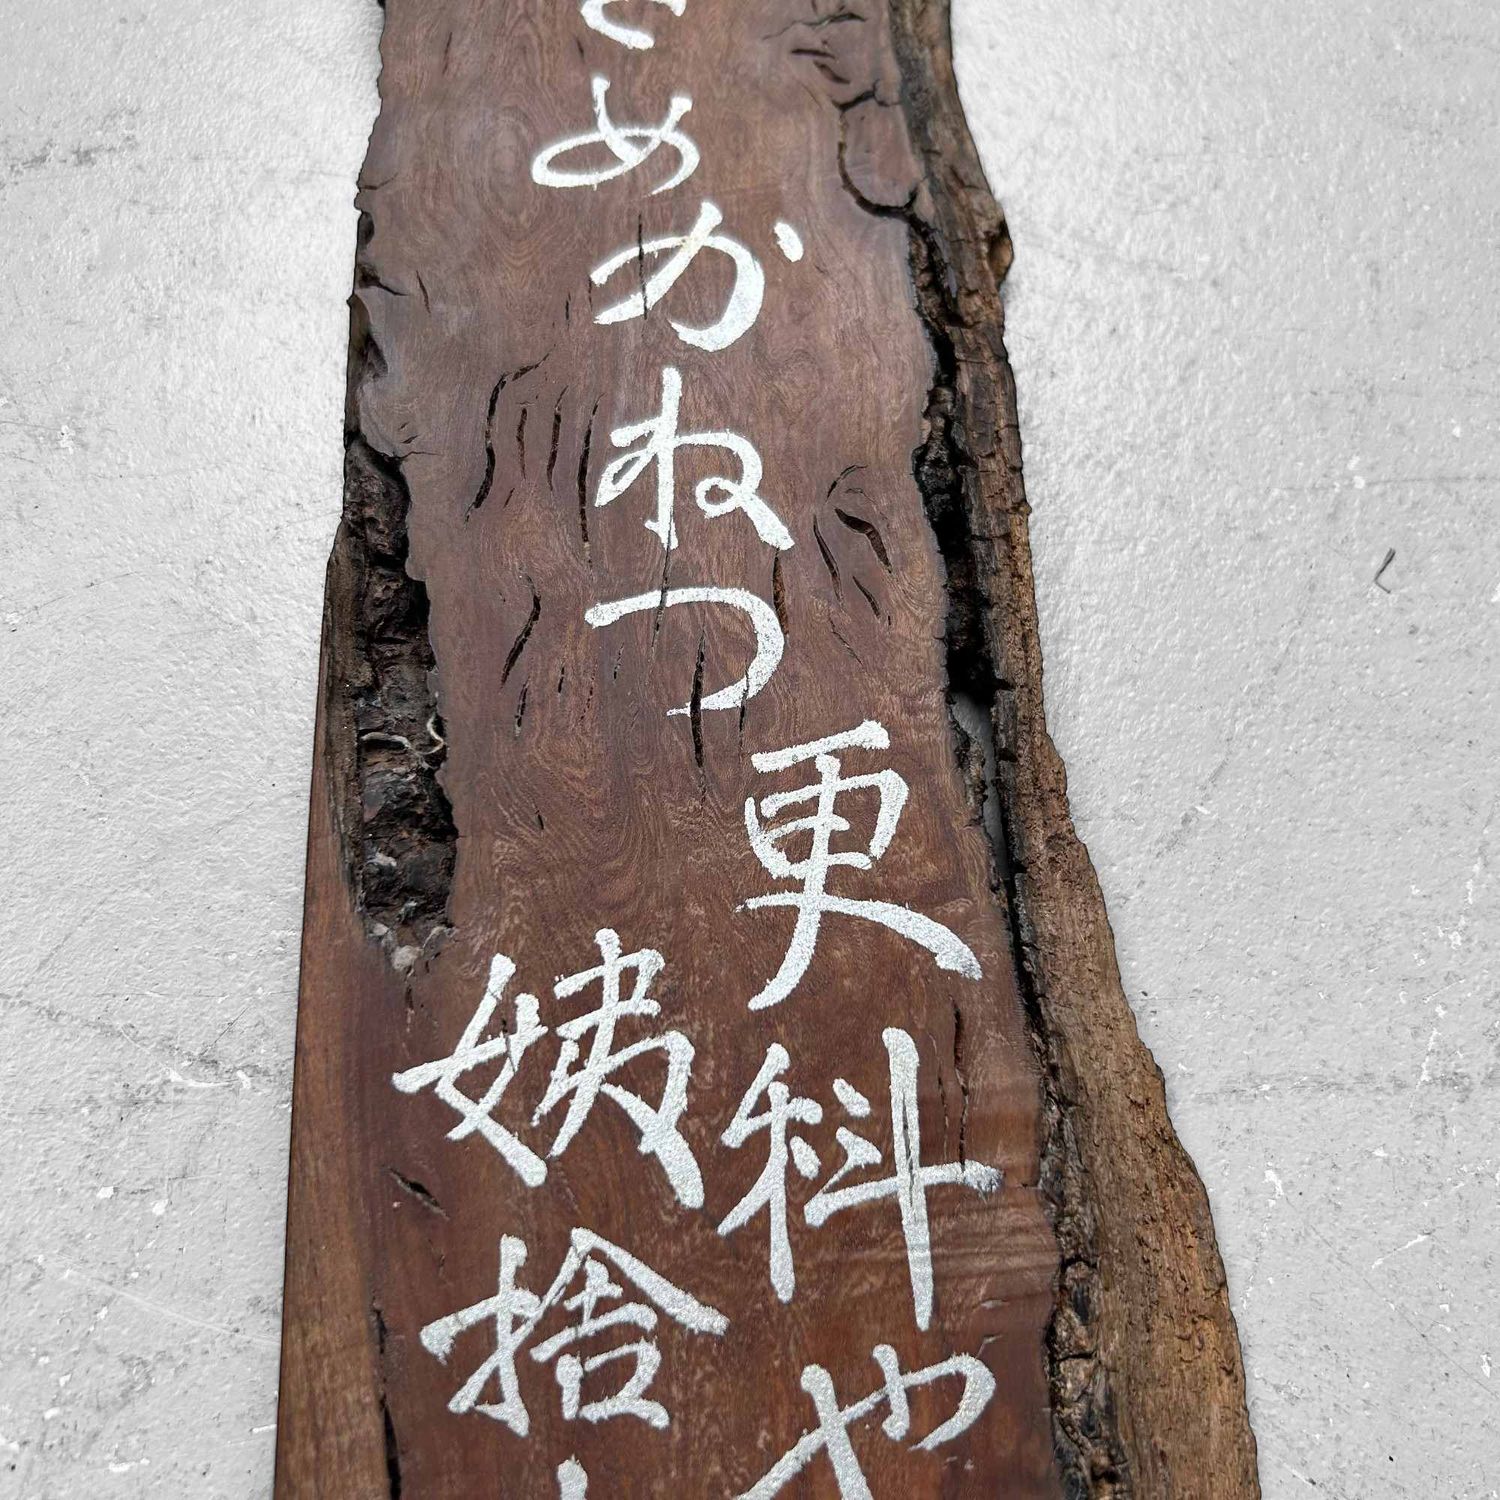 さめかねつ
更科や
姨捨